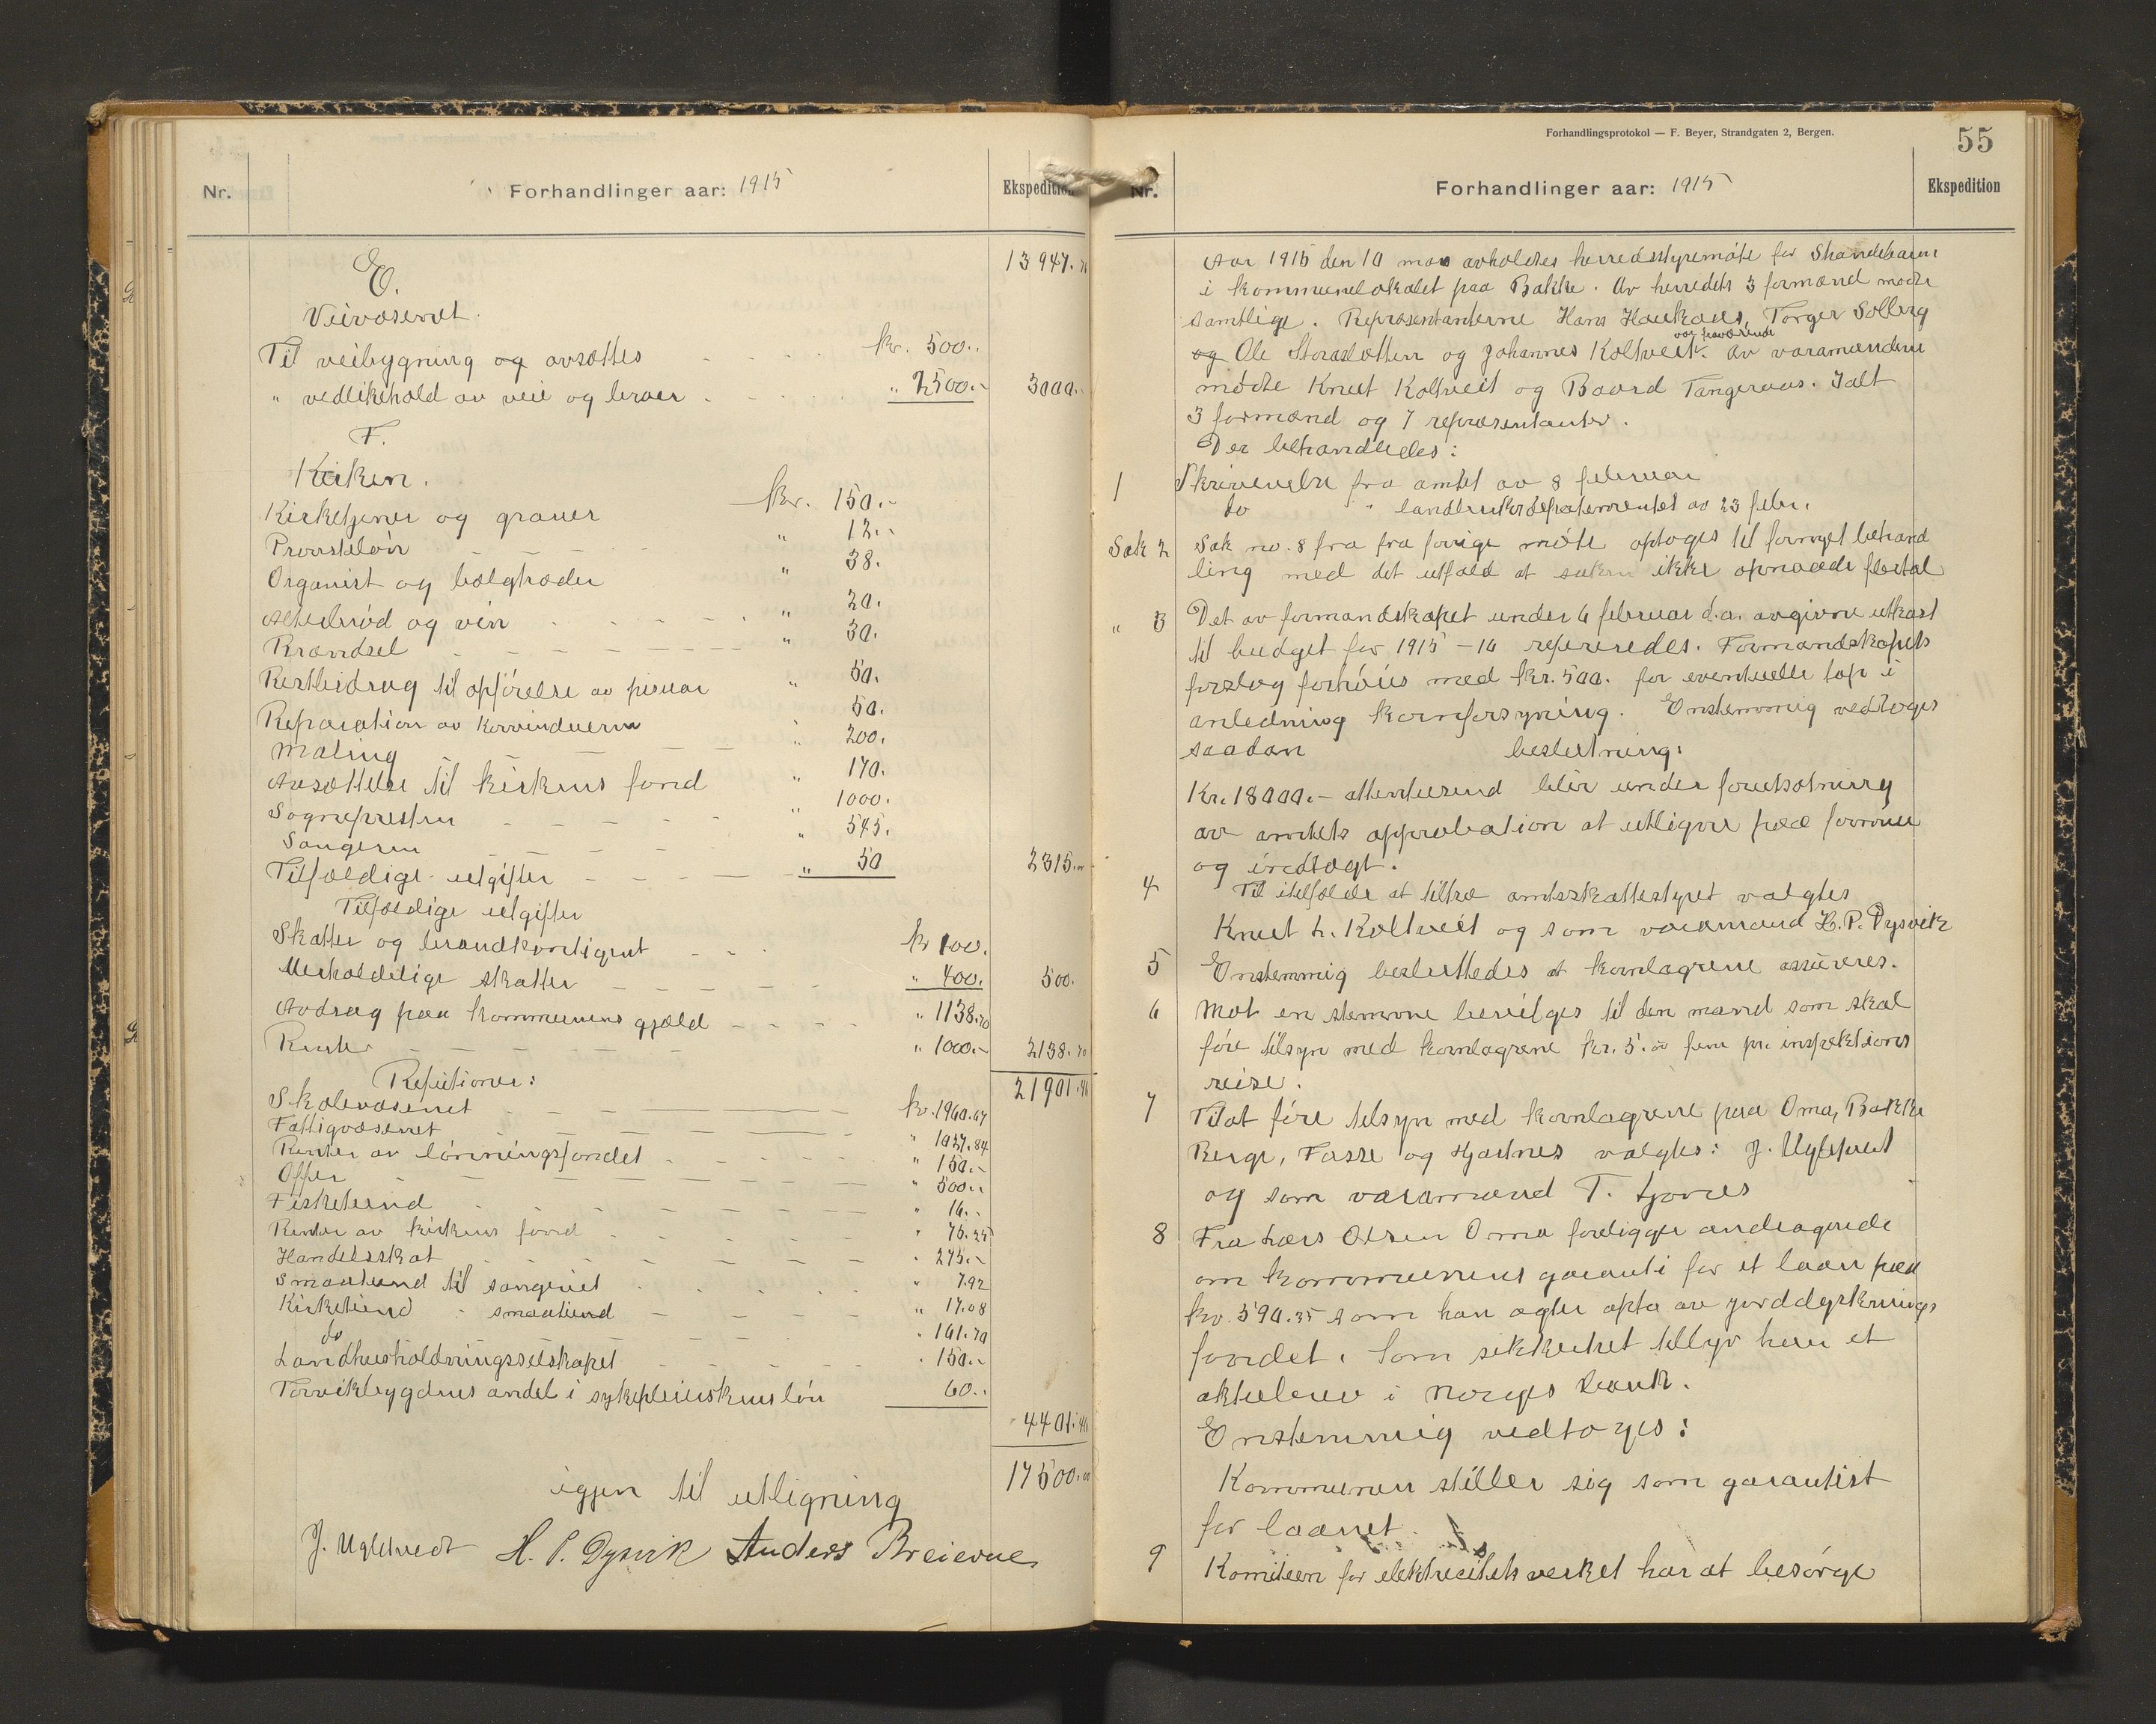 Nr.
Forhandlinger aar: 1915
Ekspedition
E.
13947.76
Veivæsenet.
Til veibygning og avsættes kr. 500.-
" vedlikehold av veie og broer " 2500.- 3000.-
F.
Kirken.
Kirketjener og graver kr. 150.-
Provsteløn " 12.-
Organist og bælgtræder " 38.
Alterbrød og vin " 20.
Brændsel " 30.
Restbidrag til opførelse av pisuar " 50.
Reparation av korvinduerne 50.
Maling " 200.
Avsættelse til kirkens fond " 170.
Sognepresten " 1000.
Sangeren " 545.
Tilfældige utgifter " 50 2315.00
Tilfældige utgifter
Skatter og brandkontigent kr 100.
Uerholdelige skatter " 400. 500.
Avdrag paa kommunens gjæld " 1138.70
Renter " 1000.- 2138.70
21901.46
Refutioner:
Skolevæsenet kr. 1960.67
Fattigvæsenet " 1027.84
Renter av lønningsfondet " 150.-
Offer " 500.-
Fisketiend " 16.-
Renter av kirkens fond " 75.25
Handelsskat " 275.-
Smaatiend til sangeriet " 7.92
Kirketiend - smaatiend " 17.08
do " 161.70
Landhusholdningsselskapet " 150.-
Torvikbygdens andel i sykepleierskens løn 60.-
4401.46
igjen til utligning 17500.00
J. Ugletvedt H. P. Dysvik Anders Breievne
Forhandlingsprotokol — F. Beyer, Strandgaten 2, Bergen.
55
Nr.
Forhandlinger aar: 1915
Ekspedition
Aar 1915 den 10 mars avholdtes herredsstyremøte for Strandebarm
i kommunelokalet paa Bakke. Av herredets 3 formænd møtte
samtlige. Repræsentanterne Hans Haukaas, Torger Solberg
var fraværende
og Ole Storaslætten og Johannes Koltveit. Av varamændene
møtte Knut Koltveit og Baard Tangeraas. Ialt
3 formænd og 7 repræsentanter.
Der behandledes:
1 Skrivelse fra amtet av 8 februar
do " landbruksdepartementet av 23 febr.
Sak 2 Sak no. 8 fra fra forrige møte optoges til fornyet behand
ling med det utfald at saken ikke opnaadde flertal
" 3 Det av formandskapet under 6 februar d.a. avgivne utkast
til budget for 1915-16 refereredes. Formandskapets
forslag forhøies med kr. 500. for eventuelle tap i
anledning kornforsyning. Enstemmig vedtoges
saadan beslutning:
Kr. 18000.- attentusend blir under forutsætning
av amtets approbation at utligne paa formue
og indtægt.
4 Til itilfælde at tiltræ amtsskattestyret valgtes
Knut L. Koltveit og som varamand H. P. Dysvik
5 Enstemmig besluttedes at kornlagrene assureres.
6 Mot en stemme bevilges til den mand som skal
føre tilsyn med kornlagrene kr. 5.00 fem pr. inspektions
reise.
7 Tilat føre tilsyn med kornlagrene paa Oma, Bakke
Berge, Fosse og Hjartnes valgtes: J. Ugletveit
og som varamand T. Tjoves
8 Fra Lars Olsen Oma foreligger andragende
om kommunens garanti for et laan paa
kr. 590.35 som han agter opta av jorddyrknings
fondet. Som sikkerhet tilbyr han et
aktiebrev i Norges Bank.
Enstemmig vedtoges:
Kommunen stiller sig som garantist
for laanet.
9 Komiteen for elektricitetsverket har at besørge